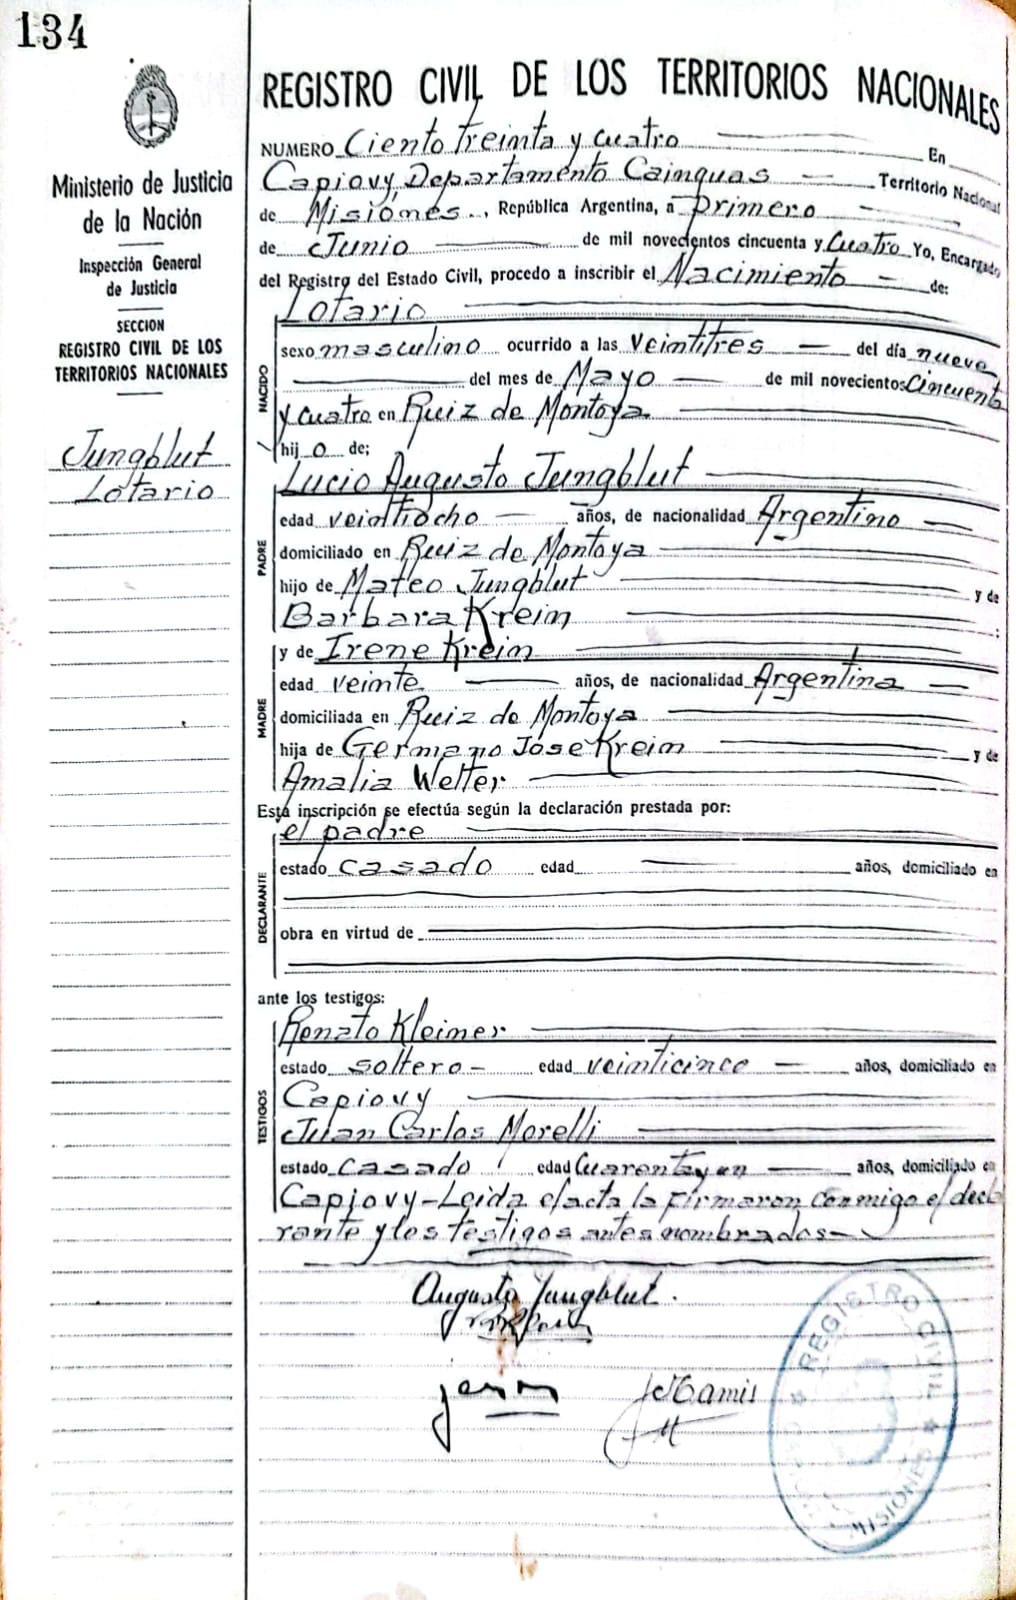 134
Ministerio de Justicia
de la Nación
Inspección General
de Justicia
SECCION
REGISTRO CIVIL DE LOS
TERRITORIOS NACIONALES
Jungblut
Lotario
REGISTRO CIVIL DE LOS TERRITORIOS NACIONALES
NUMERO Ciento treinta y cuatro En
Capiovy Departamento Cainguas Territorio Nacional
de Misiones, República Argentina, a primero
de Junio de mil novecientos cincuenta y Cuatro Yo, Encargado
del Registro del Estado Civil, procedo a inscribir el Nacimiento de:
Lotario
NACIDO
sexo masculino ocurrido a las veintitres del día nueve
del mes de Mayo de mil novecientos Cincuenta
y cuatro en Ruiz de Montoya
hijo de;
Lucio Augusto Jungblut
PADRE
edad veintiocho años, de nacionalidad Argentino
domiciliado en Ruiz de Montoya
hijo de Mateo Jungblut y de
Barbara Kreim :
y de Irene Kreim
MADRE
edad veinte años, de nacionalidad Argentina
domiciliada en Ruiz de Montoya
hija de Germano Jose Kreim y de
Amalia Welter
Esta inscripción se efectúa según la declaración prestada por:
el padre
DECLARANTE
estado casado edad años, domiciliado en
obra en virtud de
ante los testigos:
Renato Kleiner
TESTIGOS
estado soltero - edad veinticinco años, domiciliado en
Capiovy
Juan Carlos Morelli
estado casado edad Cuarenta y un años, domiciliado en
Capiovy-Leida el acta la firmaron conmigo el decla
rante y los testigos antes nombrados-
Augusto Jungblut.
REGISTRO CIVIL
MISIONES